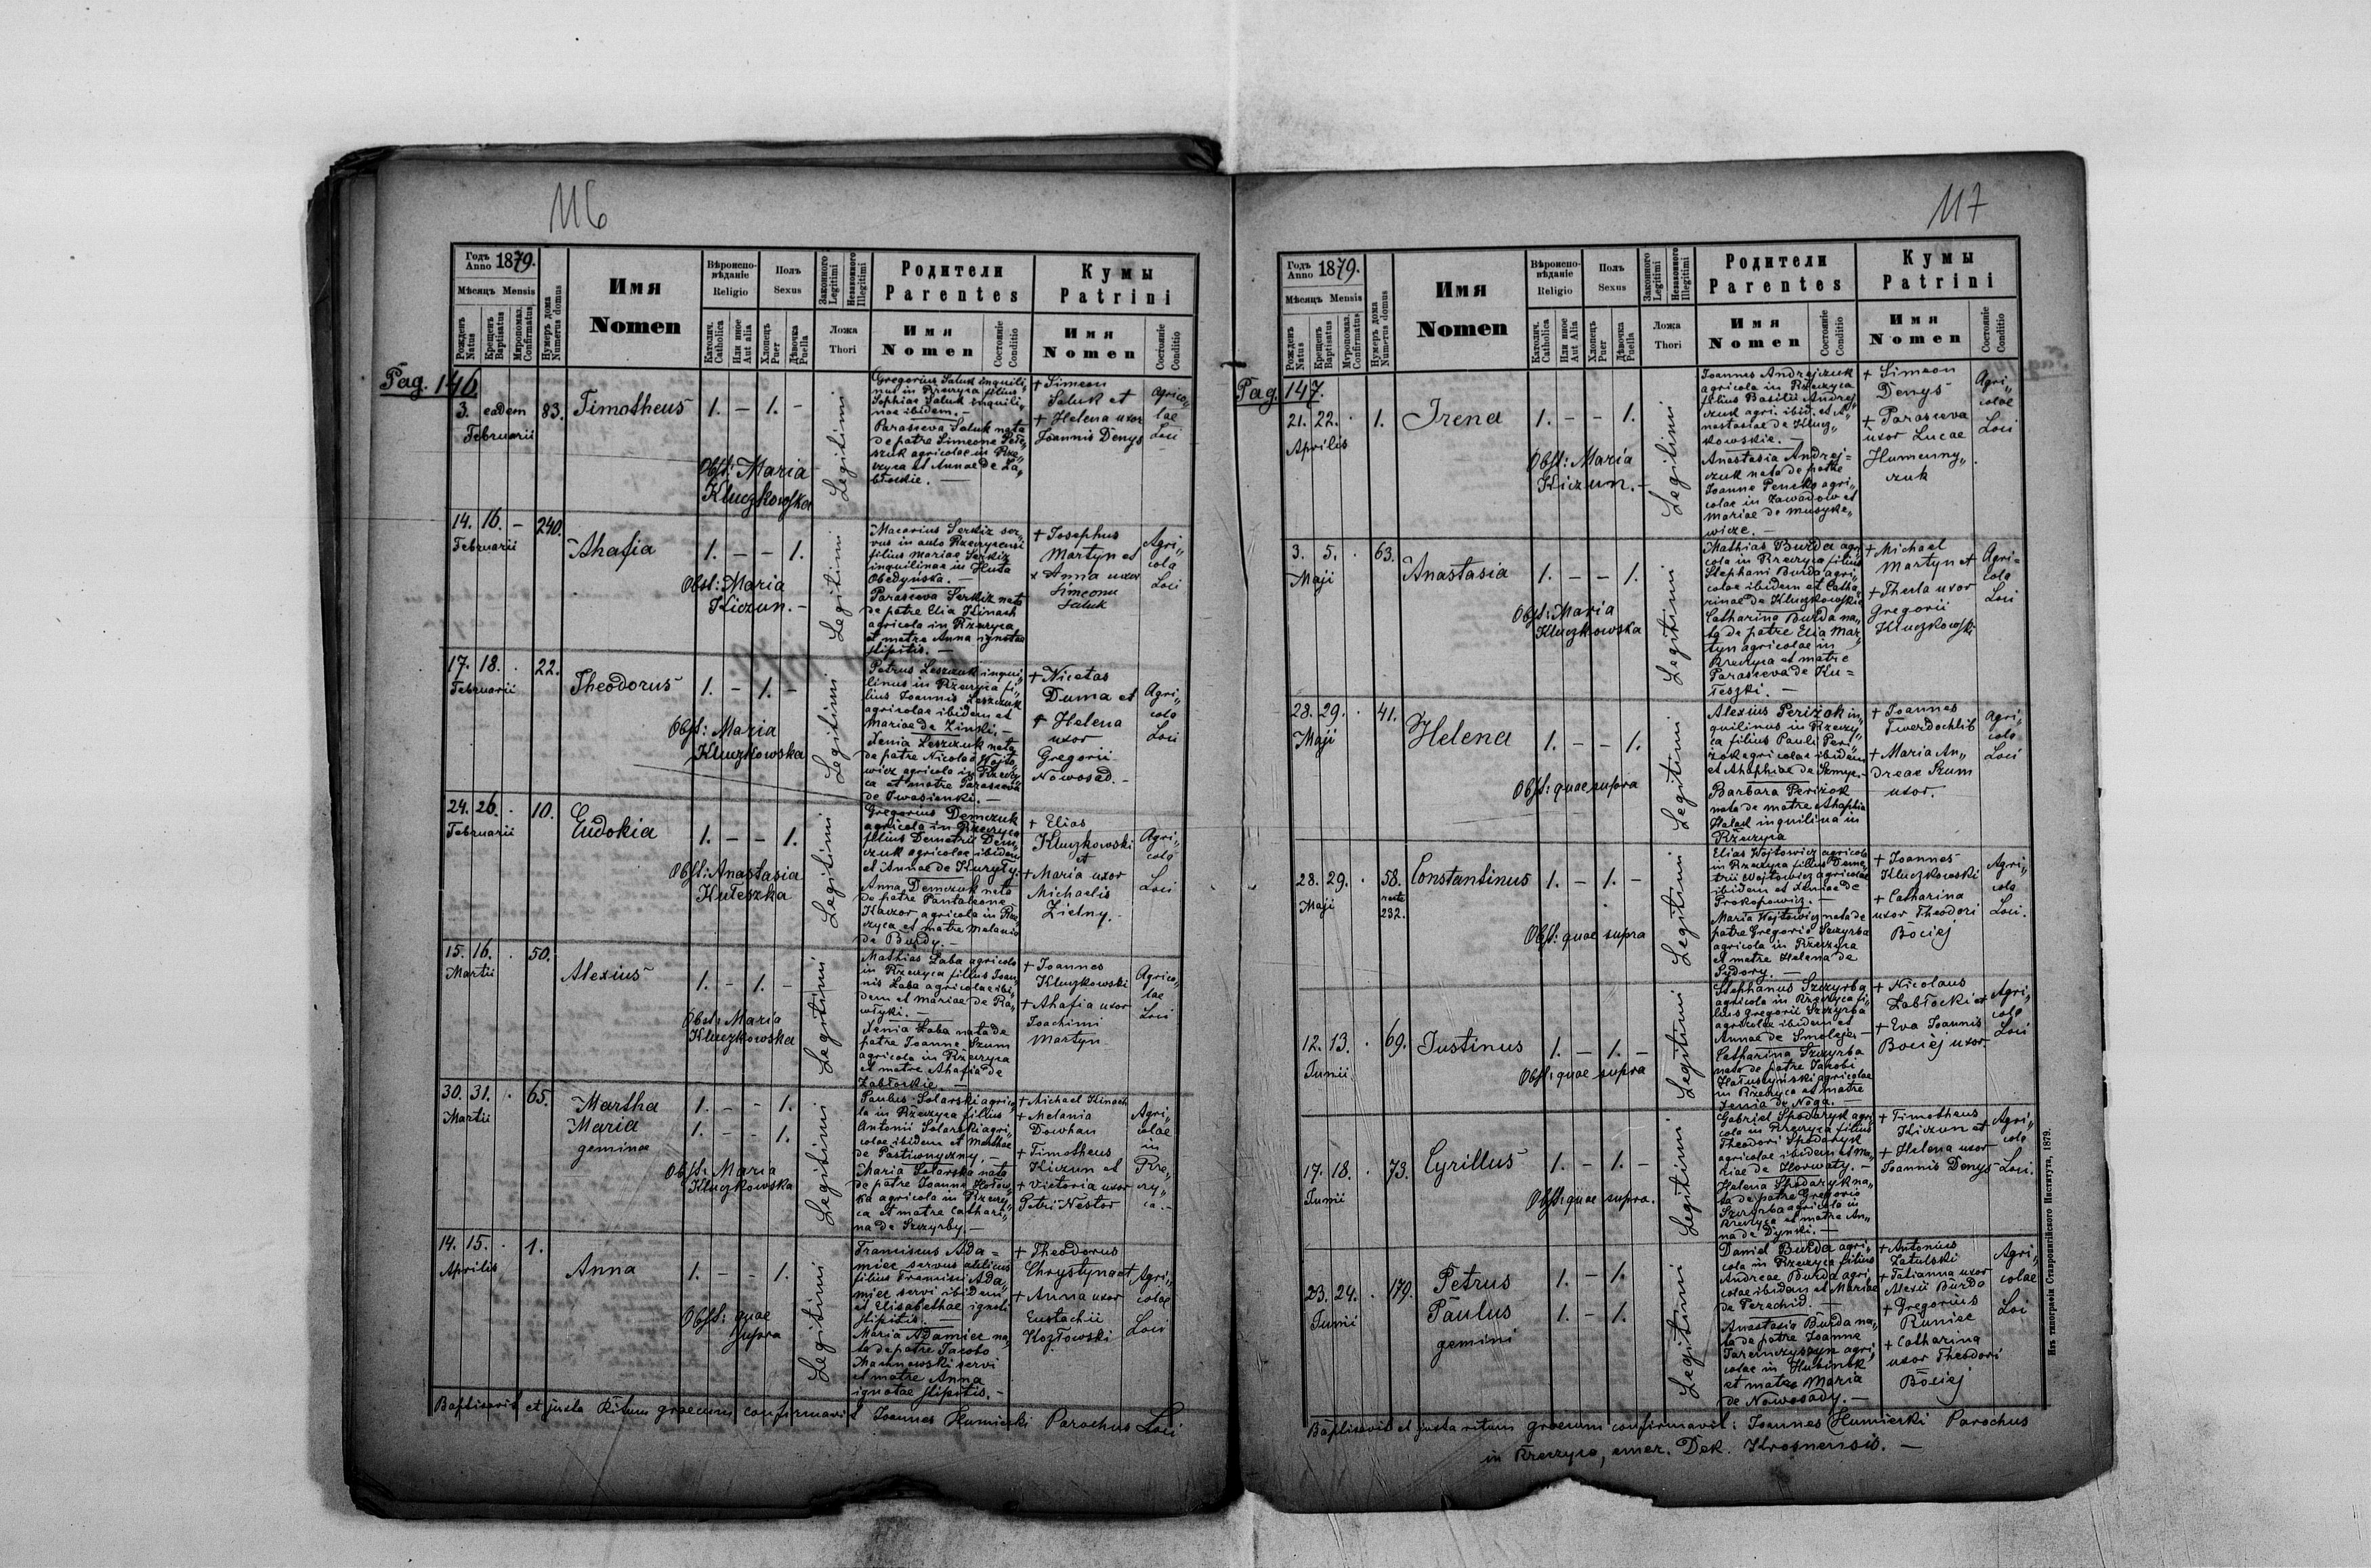 116
Годъ Anno 1879.
Мѣсяцъ Mensis
Рожденъ Natus
Крещенъ Baptisatus
Миропомаз. Confirmatus
Нумеръ дома Numerus domus
Имя
Nomen
Вѣроисповѣданіе
Religio
Католич. Catholica
Или иное Aut alia
Полъ
Sexus
Хлопецъ Puer
Дѣвочка Puella
Законного Legitimi
Незаконного Illegitimi
Ложа
Thori
Родители
Parentes
Имя
Nomen
Состояніе Conditio
Кумы
Patrini
Имя
Nomen
Состояніе Conditio
Pag. 146
3. eadem 83. Timotheus 1. – 1. –
Februarii
Obst: Maria
Kluczkowska
Legitimi
Gregorius Saluk inquili„
nus in Rzeczyca filius
Sophiae Saluk inquili„
nae ibidem. –
Parasceva Saluk nata
de patre Simeone
szuk agricolae in Rze„
czyca et Annae de Za„
błockie. –
+ Simeon
Saluk et
+ Helena uxor
Joannis Denys
Agrico„
lae
Loci
14. 16. – 240. Ahafia 1. – – 1.
Februarii
Obst: Maria
Kiczun. –
Legitimi
Macarius Serkiz ser„
vus in aula Rzeczycensi
filius Mariae Serkiz
inquilinae in Huta
Obedyńska. –
Parasceva Serkiz nata
de patre Elia Kinach
agricola in Rzeczyca
et matre Anna ignotae
stipitis. –
+ Josephus
Martyn et
x Anna uxor
Simeonis
Saluk
Agri„
cola
Loci
17. 18. . 22. Theodorus 1. – 1. –
Februarii
Obst: Maria
Kluczkowska
Legitimi
Petrus Leszczuk inqui„
linus in Rzeczyca fi„
lius Joannis Leszczuk
agricolae ibidem et
Mariae de Zinki. –
Xenia Leszczuk nata
de patre Nicolao Wojto„
wicz agricola in Rzeczy„
ca et matre Parasceva
de Iwasienki. –
+ Nicetas
Duma et
+ Helena
uxor
Gregorii
Nowosad. –
Agri„
cola
Loci
24. 26. . 10. Eudokia 1. – – 1.
Februarii
Obst: Anastasia
Kułeszka
Legitimi
Gregorius Demczuk
agricola in Rzeczyca
filius Demetrii Dem„
czuk agricolae ibidem
et Annae de Kuryły. –
Anna Demczuk nata
de patre Pantaleone
Kaczor, agricola in Rze„
czyca et matre Melania
de Burdy. –
+ Elias
Kluczkowski
et
+ Maria uxor
Michaelis
Zielny. –
Agri„
cola
Loci
15. 16. . 50. Alexius 1. – 1. –
Martii
Obst: Maria
Kluczkowska
Legitimi
Mathias Łaba agricola
in Rzeczyca filius Joan„
nis Łaba agricolae ibi„
dem et Mariae de Pa„
włyki. –
Xenia Łaba nata de
patre Joanne Szum
agricola in Rzeczyca
et matre Ahafia de
Zabłockie. –
+ Joannes
Kluczkowski
+ Ahafia uxor
Joachimi
Martyn
Agrico„
lae
Loci
30. 31. . 65. Martha 1. – – 1.
Martii Maria 1. – – 1.
geminae
Obst: Maria
Kluczkowska
Legitimi
Paulus Solarski agrico„
la in Rzeczyca filius
Antonii Solarski agri„
colae ibidem et Marthae
de Pastiwnyczny. –
Maria Solarska nata
de patre Joanne
agricola in Rzeczy„
ca et matre Cathari„
na de Szczyrby –
+ Michael Kinach
+ Melania
Dowhan
+ Timotheus
Kiczun et
+ Victoria uxor
Petri Nestor
Agri„
colae
in
Rze„
czy„
ca. –
14. 15. . 1. Anna 1. – – 1.
Aprilis
Obst: quae
supra
Legitimi
Franciscus Ada=
miec servus aulicus
filius Francisci Ada„
miec servi ibidem
et Elisabethae ignoti
stipitis. –
Maria Adamiec na„
ta de patre Jacobo
servi
et matre Anna
ignotae stipitis. –
+ Theodorus
Chrystyna et
+ Anna uxor
Eustachii
Kozłowski
Agri„
colae
Loci
Baptisavit et juxta Ritum graecum confirmavit Joannes Humiecki Parochus Loci
117
Годъ Anno 1879.
Мѣсяцъ Mensis
Рожденъ Natus
Крещенъ Baptisatus
Муропомаз. Confirmatus
Нумеръ дома Numerus domus
Имя
Nomen
Вѣроисповѣданіе
Religio
Католич. Catholica
Или иное Aut Alia
Полъ
Sexus
Хлопецъ Puer
Дѣвочка Puella
Законного Legitimi
Незаконного Illegitimi
Ложа
Thori
Родители
Parentes
Имя
Nomen
Состояніе Conditio
Кумы
Patrini
Имя
Nomen
Состояніе Conditio
Pag. 147.
21. 22. . 1. Irena 1. – – 1.
Aprilis
Obst: Maria
Kiczun. –
Legitimi
Joannes Andrejczuk
agricola in Rzeczyca
filius Basilii Andrej„
czuk agri. ibid. et A„
nastasiae de Klucz„
kowskie. –
Anastasia Andrej=
czuk nata de patre
Joanne Pencko agri„
colae in Zawadow et
Mariae de Musyke„
wicze. –
+ Simeon
Denys
+ Parasceva
uxor Lucae
Humenny„
czuk
Agri„
colae
Loci
3. 5. . 63. Anastasia 1. – – 1.
Maji
Obst: Maria
Kluczkowska
Legitimi
Mathias Burda agri„
cola in Rzeczyca filius
Stephani Burda agri„
colae ibidem et Catha„
rinae de Kluczkowskie
Catharina Burda na„
ta de patre Elia Mar„
tyn agricolae in
Rzeczyca et matre
Parasceva de Ku=
łeszki. –
+ Michael
Martyn et
+ Thecla uxor
Gregorii
Kluczkowski
Agri=
cola
Loci
28. 29. . 41. Helena 1. – – 1.
Maji
Obst: quae supra
Legitimi
Alexius Periżok in„
quilinus in Rzeczy„
ca filius Pauli Peri„
żok agricolae ibidem
et Ahaphiae de Szmyc. –
Barbara Periżok
nata de matre Ahaphia
Haład inquilina in
Rzeczyca
+ Joannes
Twerdochlib
+ Maria An„
dreae Szum
uxor.
Agri„
cola
Loci
28. 29. . 58. Constantinus 1. – 1. –
Maji recte
232.
Obst: quae supra
Legitimi
Elias Wojtowicz agricola
in Rzeczyca filius Deme„
trii Wojtowicz agricolae
ibidem et Xeniae de
Prokopowicz. –
Maria Wojtowicz nata de
patre Gregorio Szczyrba
agricola in Rzeczyca
et matre Helena de
Sydory. –
+ Joannes
Kluczkowski
+ Catharina
uxor Theodori
Bociej
Agri„
cola
Loci.
12. 13. . 69. Justinus 1. – 1. –
Junii
Obst: quae supra
Legitimi
Stephanus Szczyrba
agricola in Rzeczyca fi„
lius Gregorii Szczyrba
agricolae ibidem et
Annae de Smolage –
Catharina Szczyrba
nata de patre Jakobi
Hałuszczyński agricolae
in Rzeczyca et matre
Xenia de Noga. –
+ Nicolaus
Zabłocki et
+ Eva Joannis
Bociej uxor
Agri„
cola
Loci
17. 18. . 73. Cyrillus 1. – 1. –
Junii
Obst: quae supra.
Legitimi
Gabriel Spodaryk agri„
cola in Rzeczyca filius
Theodori Spodaryk
agricolae ibidem et Ma„
riae de Horwaty. –
Helena Spodaryk na„
ta de patre Gregorio
Szczyrba agricola in
Rzeczyca et matre An„
na de Dynski. –
+ Timotheus
Kiczun et
+ Helena uxor
Joannis Denys
Agri„
cola
Loci.
23. 24. . 179. Petrus 1. – 1.
Junii Paulus 1. – 1.
gemini
Legitimi
Daniel Burda agri„
cola in Rzeczyca filius
Andreae Burda agri„
colae ibidem et Mariae
de Perechid. –
Anastasia Burda na„
ta de patre Joanne
agri„
colae in Hubinok
et matre Maria
de Nowosady. –
+ Antonius
Zatulski
+ Tatianna uxor
Alexii Burda
+ Gregorius
Runiec
+ Catharina
uxor Theodori
Bociej
Agri„
colae
Loi
Baptisavit et juxta ritum graecum confirmavit: Joannes Humiecki Parochus
in Rzeczyca, Dek.
Изъ типографіи Ставропигійского Института, 1879.